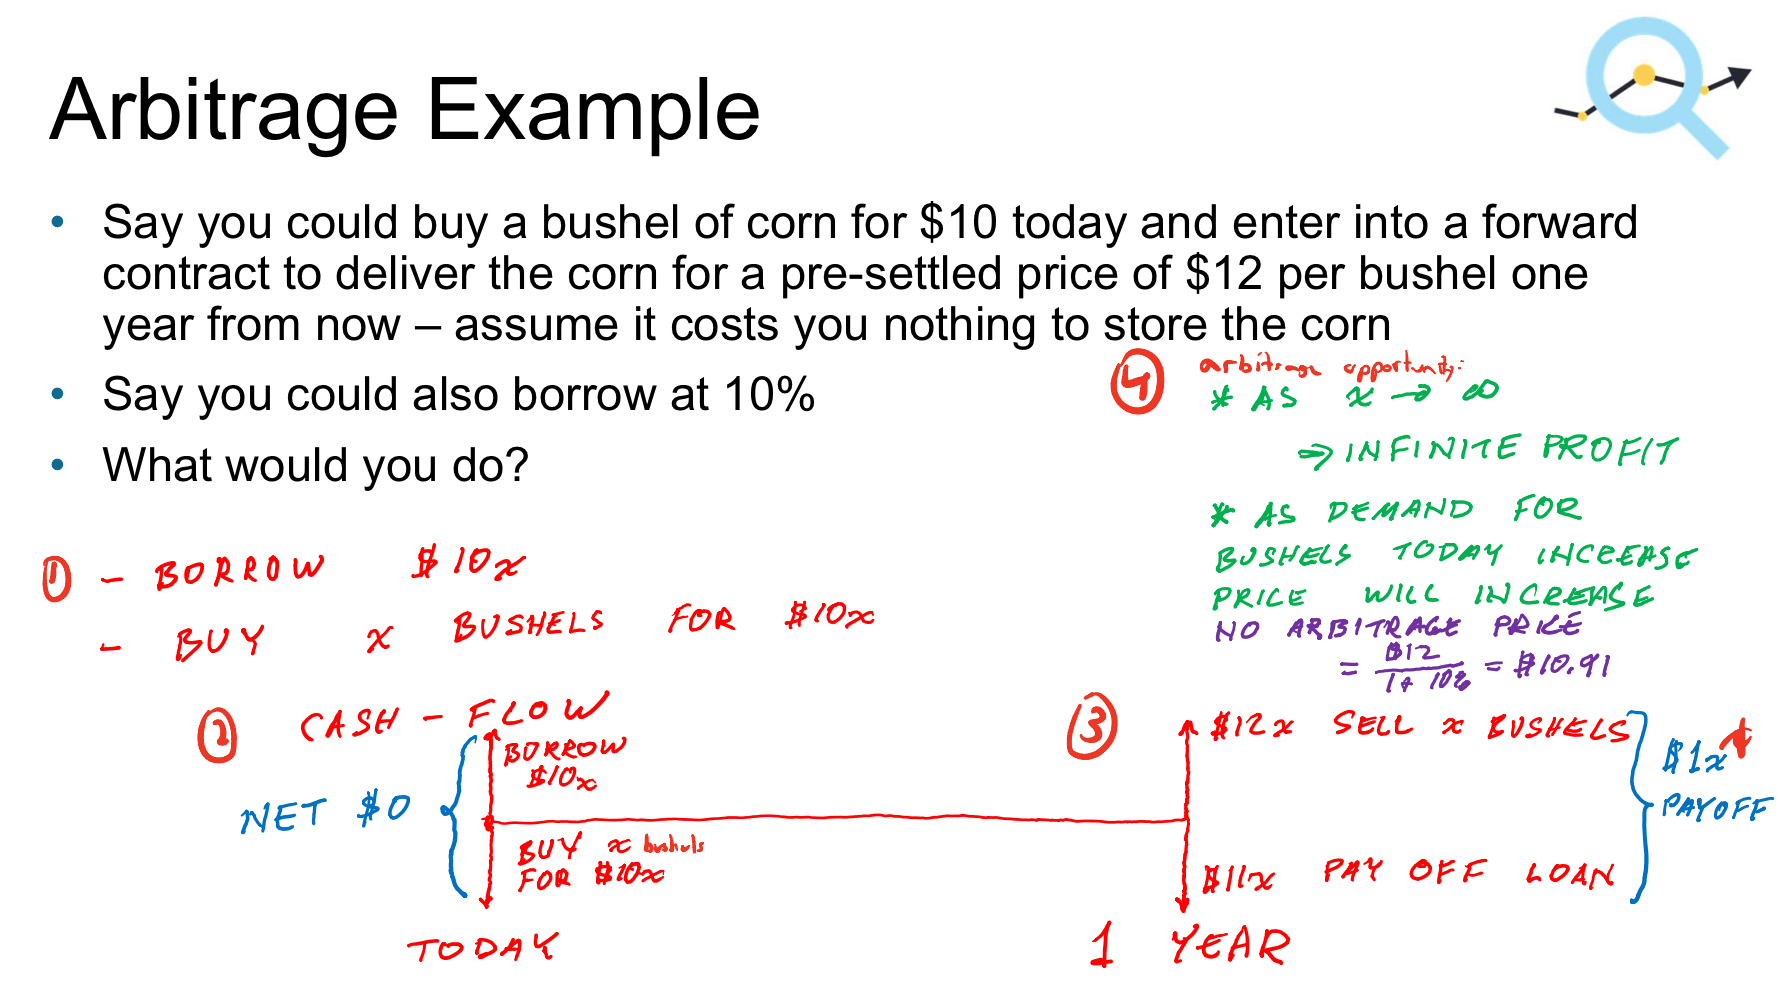 Arbitrage Example
• Say you could buy a bushel of corn for $10 today and enter into a forward
contract to deliver the corn for a pre-settled price of $12 per bushel one
year from now – assume it costs you nothing to store the corn
• Say you could also borrow at 10%
• What would you do?
① - BORROW $10x
- BUY x BUSHELS FOR $10x
② CASH - FLOW
BORROW
$10x
NET $0
BUY x bushels
FOR $10x
TODAY
③ $12x SELL x BUSHELS
$1x
PAYOFF
$11x PAY OFF LOAN
1 YEAR
④ arbitrage opportunity:
* AS x → ∞
⇒ INFINITE PROFIT
* AS DEMAND FOR
BUSHELS TODAY INCREASE
PRICE WILL INCREASE
NO ARBITRAGE PRICE
= $12 / 1 + 10% = $10.91